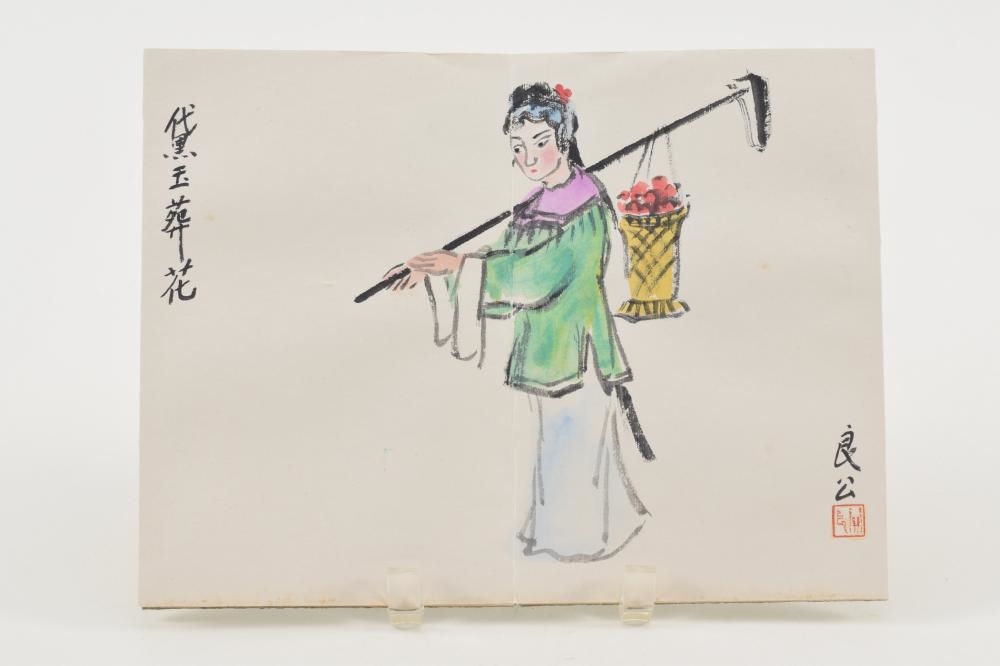 黛玉葬花
良公